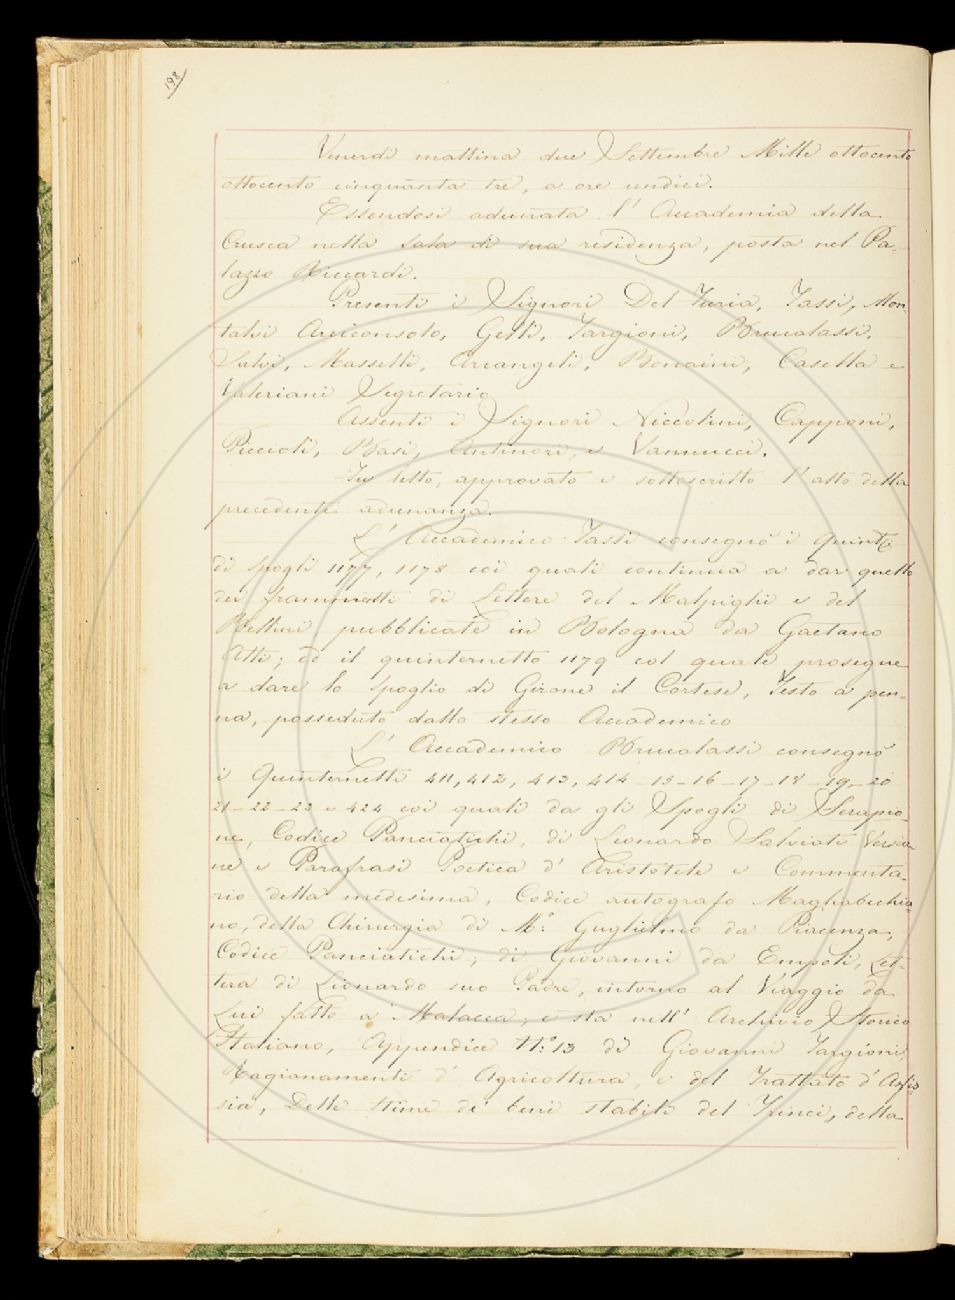 198
Venerdì mattina due Settembre Mille ottocento
ottocento cinquanta tre, a ore undici.
Essendosi adunata l' Accademia della
Crusca nella Sala di sua residenza, posta nel Pa-
lazzo Riccardi.
Presenti i Signori Del-Furia, Tassi, Mon-
talvi Arciconsolo, Gelli, Targioni, Brucalassi,
Salvi, Masselli, Arcangeli, Bonaini, Casella e
Valeriani Segretario
Assenti i Signori Niccolini, Capponi,
Piccioli, Basi, Antinori, e Vannucci.
Fu letto, approvato e sottoscritto l' atto della
precedente adunanza.
L' Accademico Tassi consegnò i
di Spogli 1177, 1178 coi quali continua a dar quello
dei frammenti di Lettere del Malpighi e del
Bellini pubblicate in Bologna da Gaetano
Atti; ed il quinternetto 1179 col quale prosegue
a dare lo Spoglio di Girone il Cortese, Testo a pen-
na, posseduto dallo stesso Accademico
L' Accademico Brucalassi consegnò
i Quinternetti 411, 412, 413, 414 - 15 - 16 - 17 - 18 - 19 - 20
21 - 22 - 23 e 424 coi quali da gli Spogli di Serapio-
ne, Codice Panciatichi, di Leonardo Salviati Versio-
ne e Parafrasi Poetica d' Aristotele e Commenta-
rio della medesima, Codice autografo Magliabechia-
no, della Chirurgia di M.º Guglielmo da Piacenza,
Codice Panciatichi; di Giovanni da Empoli, Let-
tera di Lionardo suo Padre, intorno al Viaggio da
Lui fatto a Malacca; e sta nell' Archivio Storico
Italiano, Appendice N.º 13 di Giovanni Targioni,
Ragionamenti d' Agricoltura, e del Trattato d'
sia, Delle stime de' beni stabili del Trinci, della